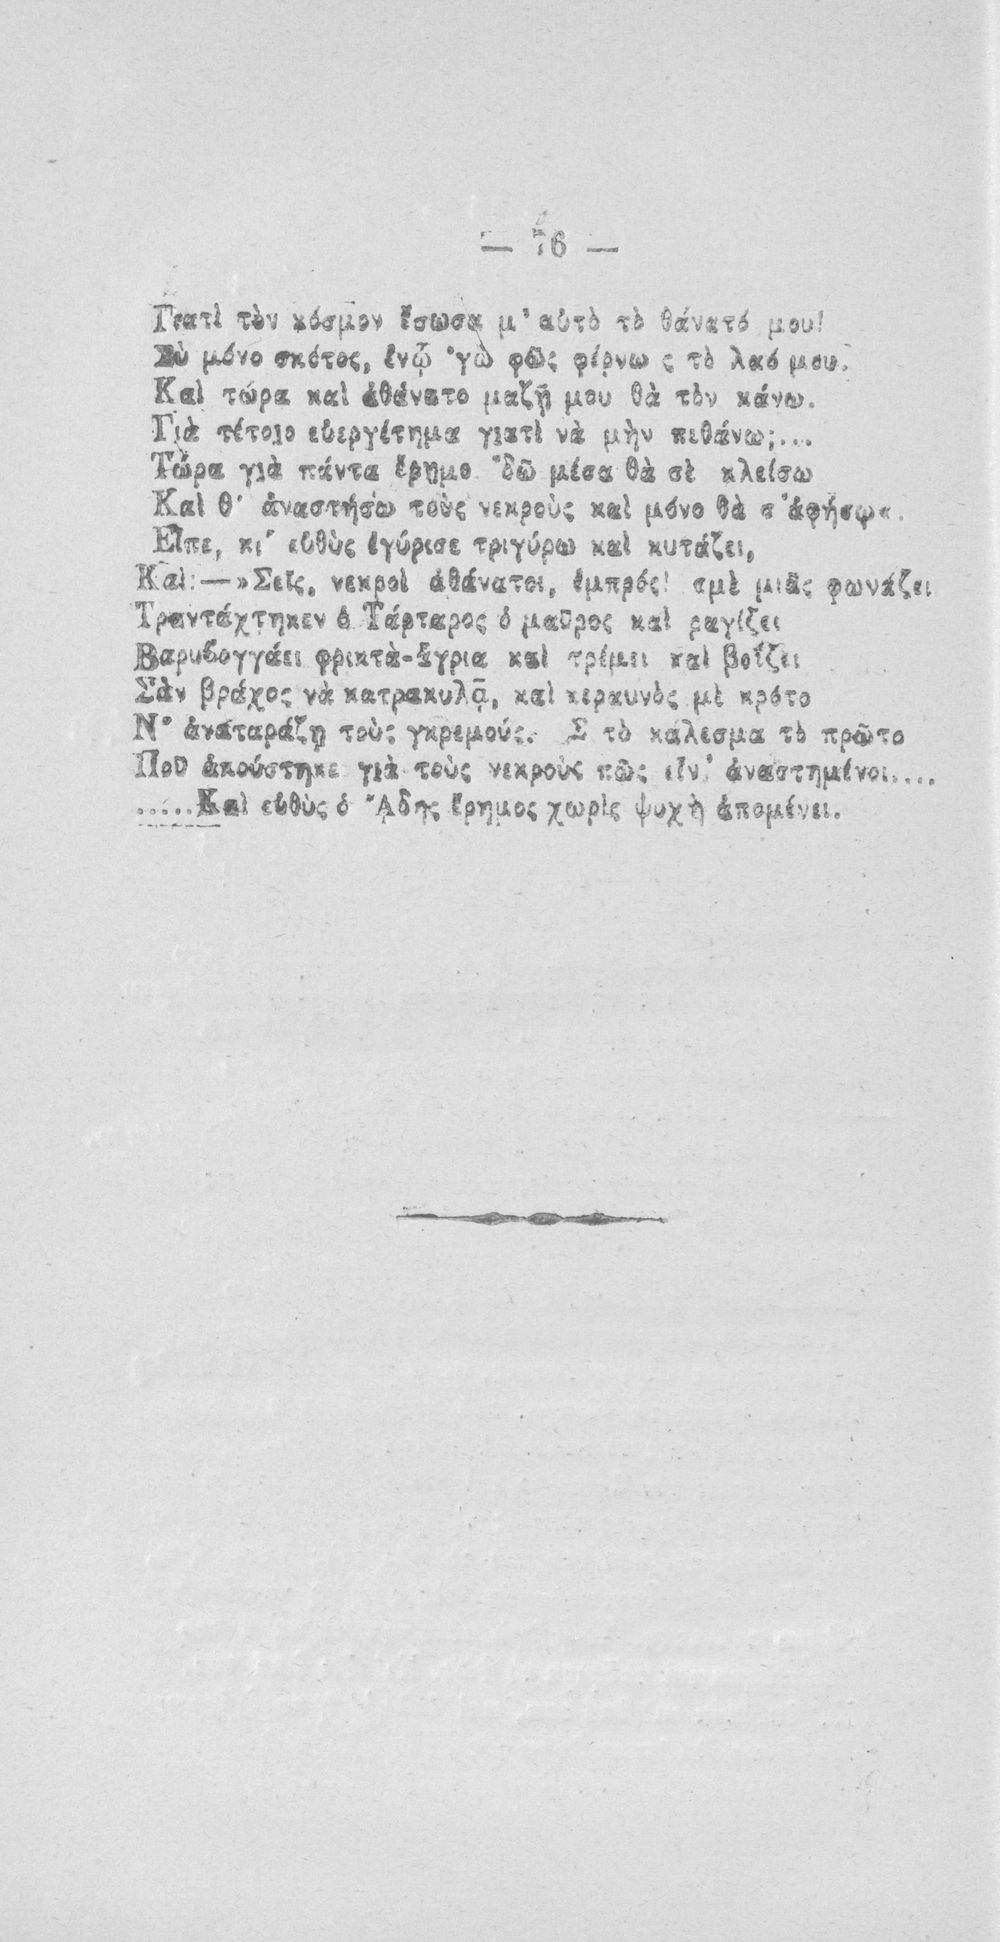 — 76 —
Γιατὶ τὸν κόσμον ἔσωσα μ' αὐτὸ τὸ θάνατό μου!
Σὺ μόνο σκότος, ἐνῷ 'γὼ φῶς φέρνω ς τὸ λαό μου.
Καὶ τώρα καὶ ἀθάνατο μαζῆ μου θὰ τὸν κάνω.
Γιὰ τέτοιο εὐεργέτημα γιατὶ νὰ μὴν πεθάνω;...
Τώρα γιὰ πάντα ἔρημο 'δῶ μέσα θὰ σὲ κλείσω
Καὶ θ' ἀναστήσω τοὺς νεκροὺς καὶ μόνο θὰ σ' ἀφήσω«.
Εἶπε, κι' εὐθὺς ἐγύρισε τριγύρω καὶ κυτάζει,
Καὶ:—»Σεῖς, νεκροὶ ἀθάνατοι, ἐμπρός! σμὲ μιᾶς φωνάζει
Τραντάχτηκεν ὁ Τάρταρος ὁ μαῦρος καὶ ραγίζει
Βαρυβογγάει φρικτὰ-ἄγρια καὶ τρέμει καὶ βοΐζει
Σὰν βράχος νὰ κατρακυλᾷ, καὶ κεραυνὸς μὲ κρότο
Ν' ἀναταράζῃ τοὺς γκρεμούς. Σ τὸ κάλεσμα τὸ πρῶτο
Ποῦ ἀκούστηκε γιὰ τοὺς νεκροὺς πῶς εἶν' ἀναστημένοι....
.....Καὶ εὐθὺς ὁ Ἅδης ἔρημος χωρὶς ψυχὴ ἀπομένει.